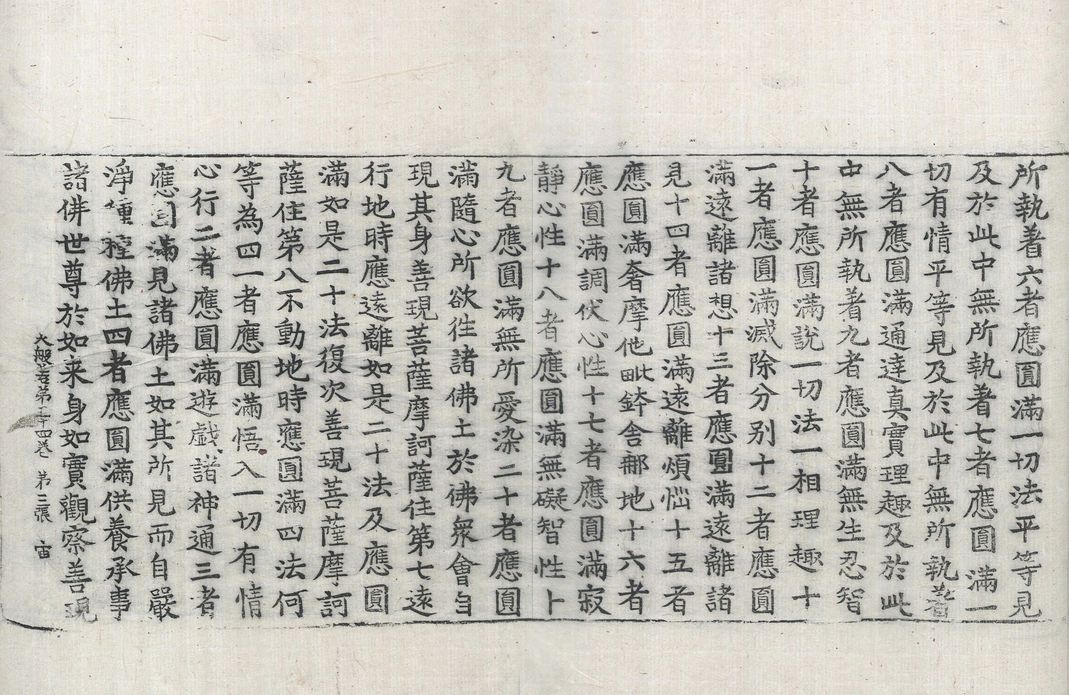 所執著六者應圓滿一切法平等見
及於此中無所執著七者應圓滿一
切有情平等見及於此中無所執著
八者應圓滿通達真實理趣及於此
中無所執著九者應圓滿無生忍智
十者應圓滿說一切法一相理趣十
一者應圓滿滅除分別十二者應圓
滿遠離諸想十三者應圓滿遠離諸
見十四者應圓滿遠離煩惱十五者
應圓滿奢摩他毗鉢舍那地十六者
應圓滿調伏心性十七者應圓滿寂
靜心性十八者應圓滿無礙智性十
九者應圓滿無所愛染二十者應圓
滿隨心所欲往諸佛土於佛眾會自
現其身善現菩薩摩訶薩住第七遠
行地時應遠離如是二十法及應圓
滿如是二十法復次善現菩薩摩訶
薩住第八不動地時應圓滿四法何
等為四一者應圓滿悟入一切有情
心行二者應圓滿遊戲諸神通三者
應圓滿見諸佛土如其所見而自嚴
淨種種佛土四者應圓滿供養承事
諸佛世尊於如来身如實觀察善現
大般若第五十四卷 第三張 宙